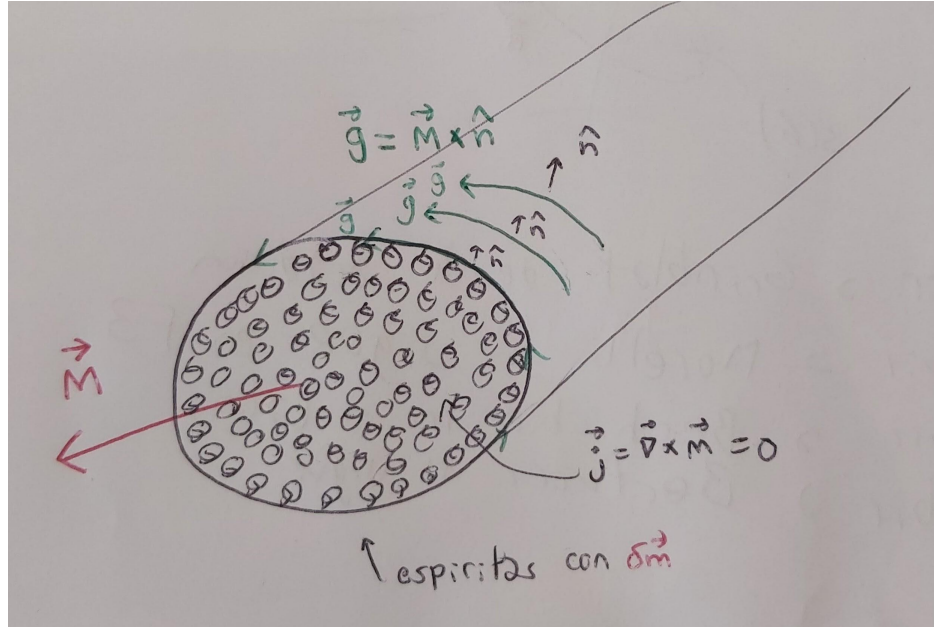 g⃗ = M⃗ × n̂
n̂
g⃗
g⃗
g⃗
n̂
n̂
M⃗
j⃗ = ∇⃗ × m⃗ = 0
espiritas con δm⃗